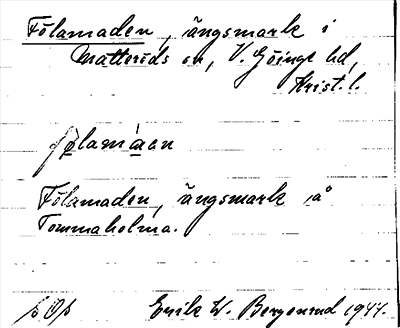 Fölamaden, ängsmark i
Matteröds sn, V. Göinge hd,
Krist. l.
Fölamaden, ängsmark på
Tommaholma.
Erik W. Bergenrud 1944.